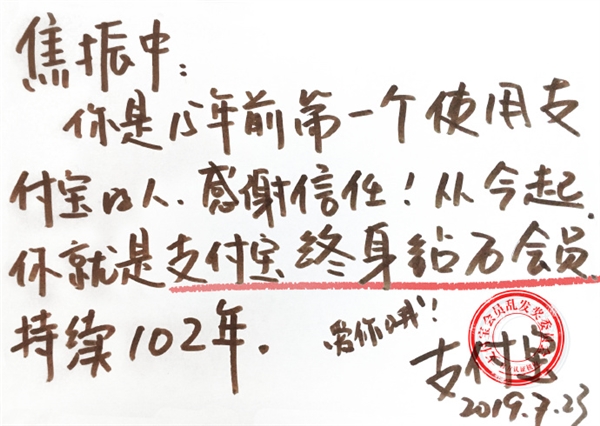 焦振中:
你是15年前第一个使用支
付宝的人.感谢信任!从今起.
你就是支付宝终身钻石会员.
持续102年.
爱你哦!
宝会员乱发奖委
支付宝
2019.7.23